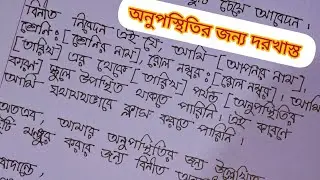 চেয়ে আবেদন।
অনুপস্থিতির জন্য দরখাস্ত
বিনীত নিবেদন এই যে, আমি [আপনার নাম],
শ্রেণি: [শ্রেণির নাম], রোল নম্বর: [রোল নম্বর], আমি
[তারিখ] এর থেকে [তারিখ] পর্যন্ত [অনুপস্থিতির
কারণে] স্কুলে উপস্থিত থাকতে পারিনি। এই কারণে
আমি যথাযথভাবে ক্লাস করতে পারিনি।
অতএব, আমার অনুপস্থিতির জন্য উল্লেখিত
মঞ্জুর করার জন্য বিনীত